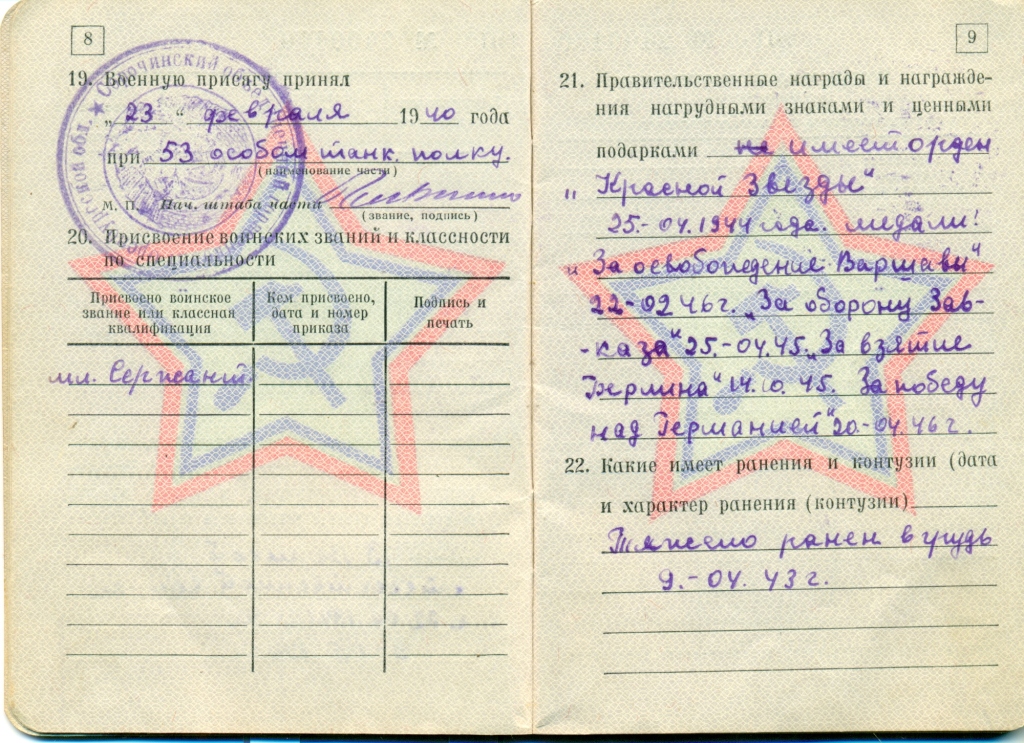 8
19. Военную присягу принял
„ 23 “ февраля 1940 года
при 53 особом танк. полку.
(наименование части)
М. П. Нач. штаба части
(звание, подпись)
20. Присвоение воинских званий и классности
по специальности
Присвоено воинское звание или классная квалификация
Кем присвоено, дата и номер приказа
Подпись и печать
мл. Сержант
9
21. Правительственные награды и награжде-
ния нагрудными знаками и ценными
подарками не имеет орден
„ Красной Звезды“
25.-04.1944 года. медали!
„ За освобождение Варшави“
22-02 46г. „За оборону Зав-
-каза“ 25.-04.45. „За взятие
Берлина“ 14.10.45. За победу
над Германией“ 20-04.46г.
22. Какие имеет ранения и контузии (дата
и характер ранения (контузии)
Тяжело ранен в грудь
9.-04. 43г.